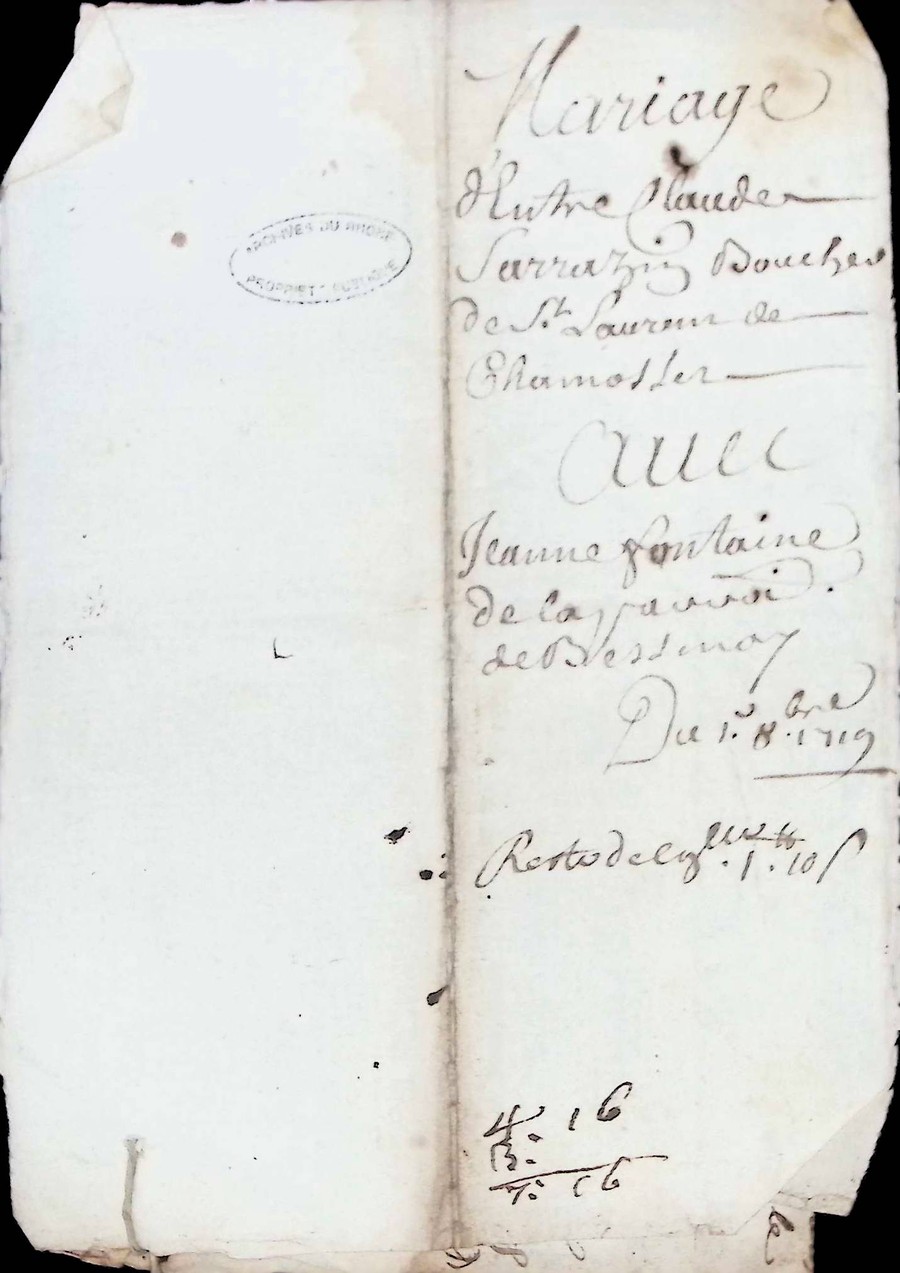 ARCHIVES DU RHONE
PROPRIÉTÉ PUBLIQUE
Mariage
d'Entre Claude
Sarrazin Boucher
de St. Laurent de
Chamosset
Avec
Jeanne fontaine
de la parroi.
de Bessenay
Du 1r. 8.bre 1719
Reste de 1. 10 s
4. 16
3.
7. 16